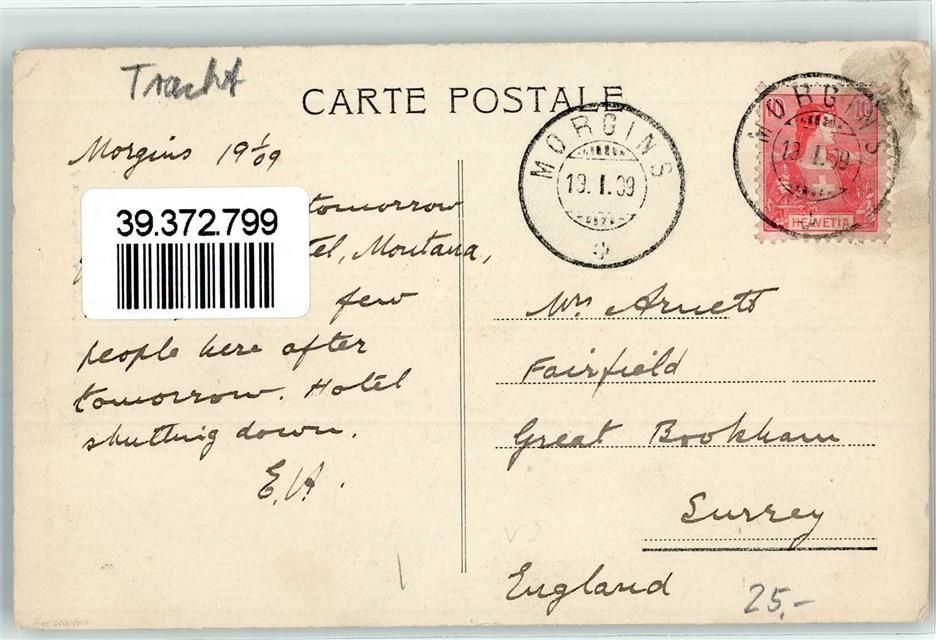 Tracht
CARTE POSTALE
Morgins 19 1/09
tomorrow
tel, Montana,
few
people here after
tomorrow. Hotel
shutting down.
E.A.
39.372.799
MORGINS
19.I.09
10
MORGINS
19.I.09
HELVETIA
Arnett
Fairfield
Great Bookham
Surrey
England
25,-